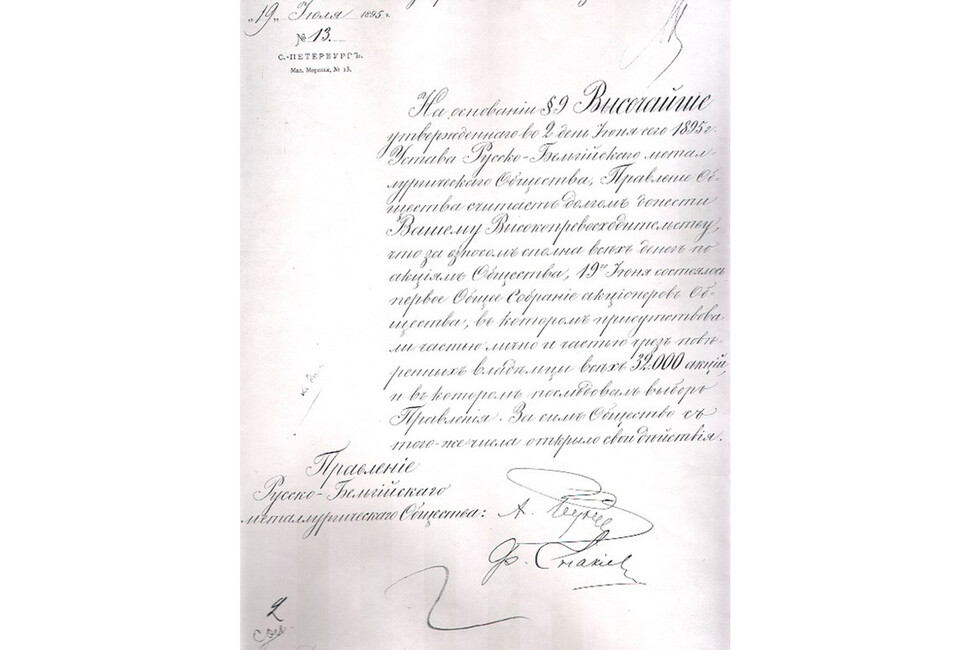 „19„ Іюля 1895 г.
№ 13.
С.-ПЕТЕРБУРГЪ.
Мал. Морская, № 13.
На основаніи § 9 Высочайше
утвержденнаго во 2 день Іюня сего 1895 г.
Устава Русско-Бельгійскаго метал-
лургическаго Общества, Правленіе Об-
щества считаетъ долгомъ донести
Вашему Высокопревосходительству,
что за взносомъ сполна всѣхъ денегъ по
акціямъ Общества, 19го Іюня состоялось
первое Общее Собраніе акціонеровъ Об-
щества, въ которомъ присутствова
ли частью лично и частью чрезъ повѣ-
ренныхъ владѣльцы всѣхъ 32.000 акцій,
и въ которомъ послѣдовалъ выборъ
Правленія. За симъ Общество съ
того-же числа открыло свои дѣйствія.
Правленіе
Русско-Бельгійскаго
металлургическаго Общества:
А.
Ф.
2